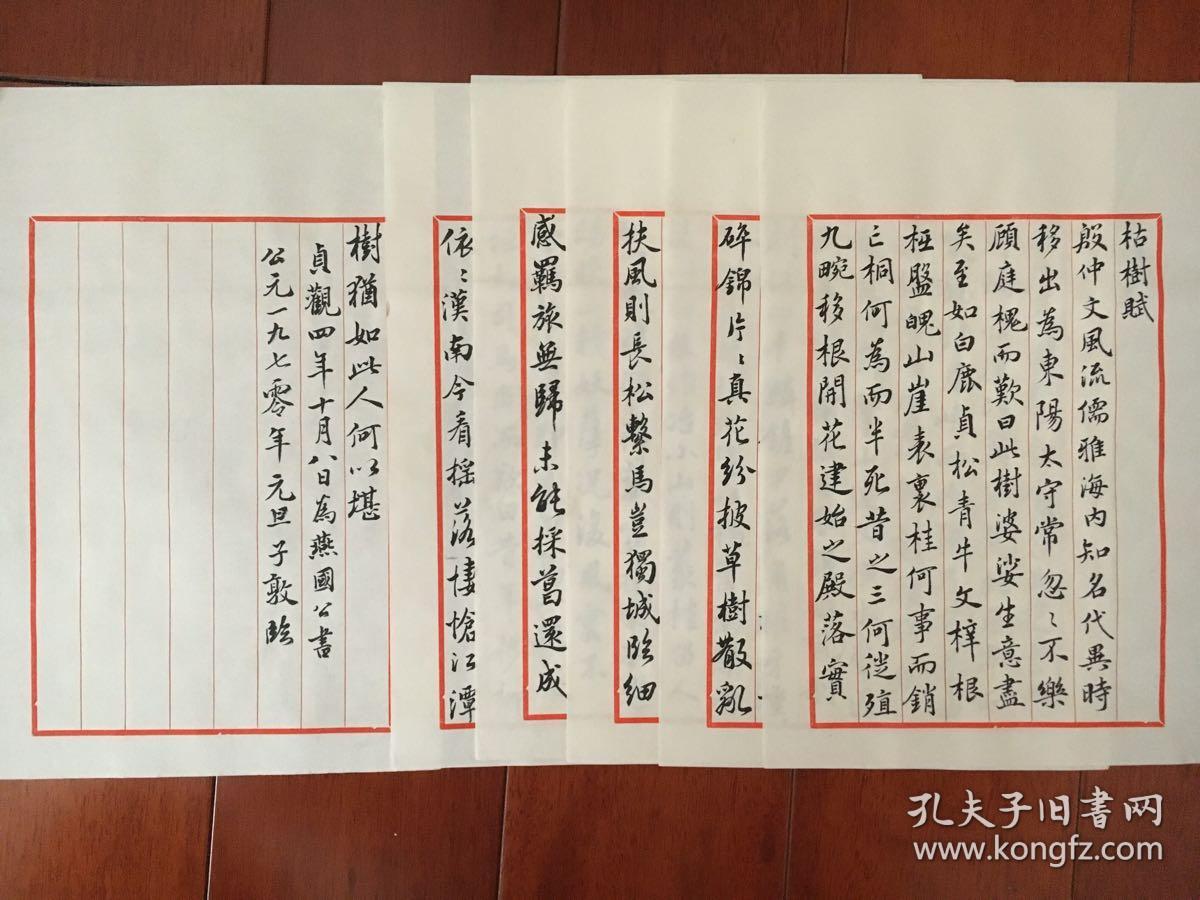 枯樹賦
殷仲文風流儒雅海内知名代異時
移出為東陽太守常忽〻不樂
顧庭槐而歎曰此樹婆娑生意盡
矣至如白鹿貞松青牛文梓根
柢盤魄山崖表裏桂何事而銷
亡桐何為而半死昔之三何從殖
九畹移根開花建始之殿落實
碎錦片〻真花紛披草樹散亂
扶風則長松繫馬豈獨城臨細
感羈旅無歸未能採葛還成
依〻漢南今看摇落悽愴江潭
樹猶如此人何以堪
貞觀四年十月八日為燕國公書
公元一九七零年元旦子敦臨
孔夫子旧书网
www.kongfz.com